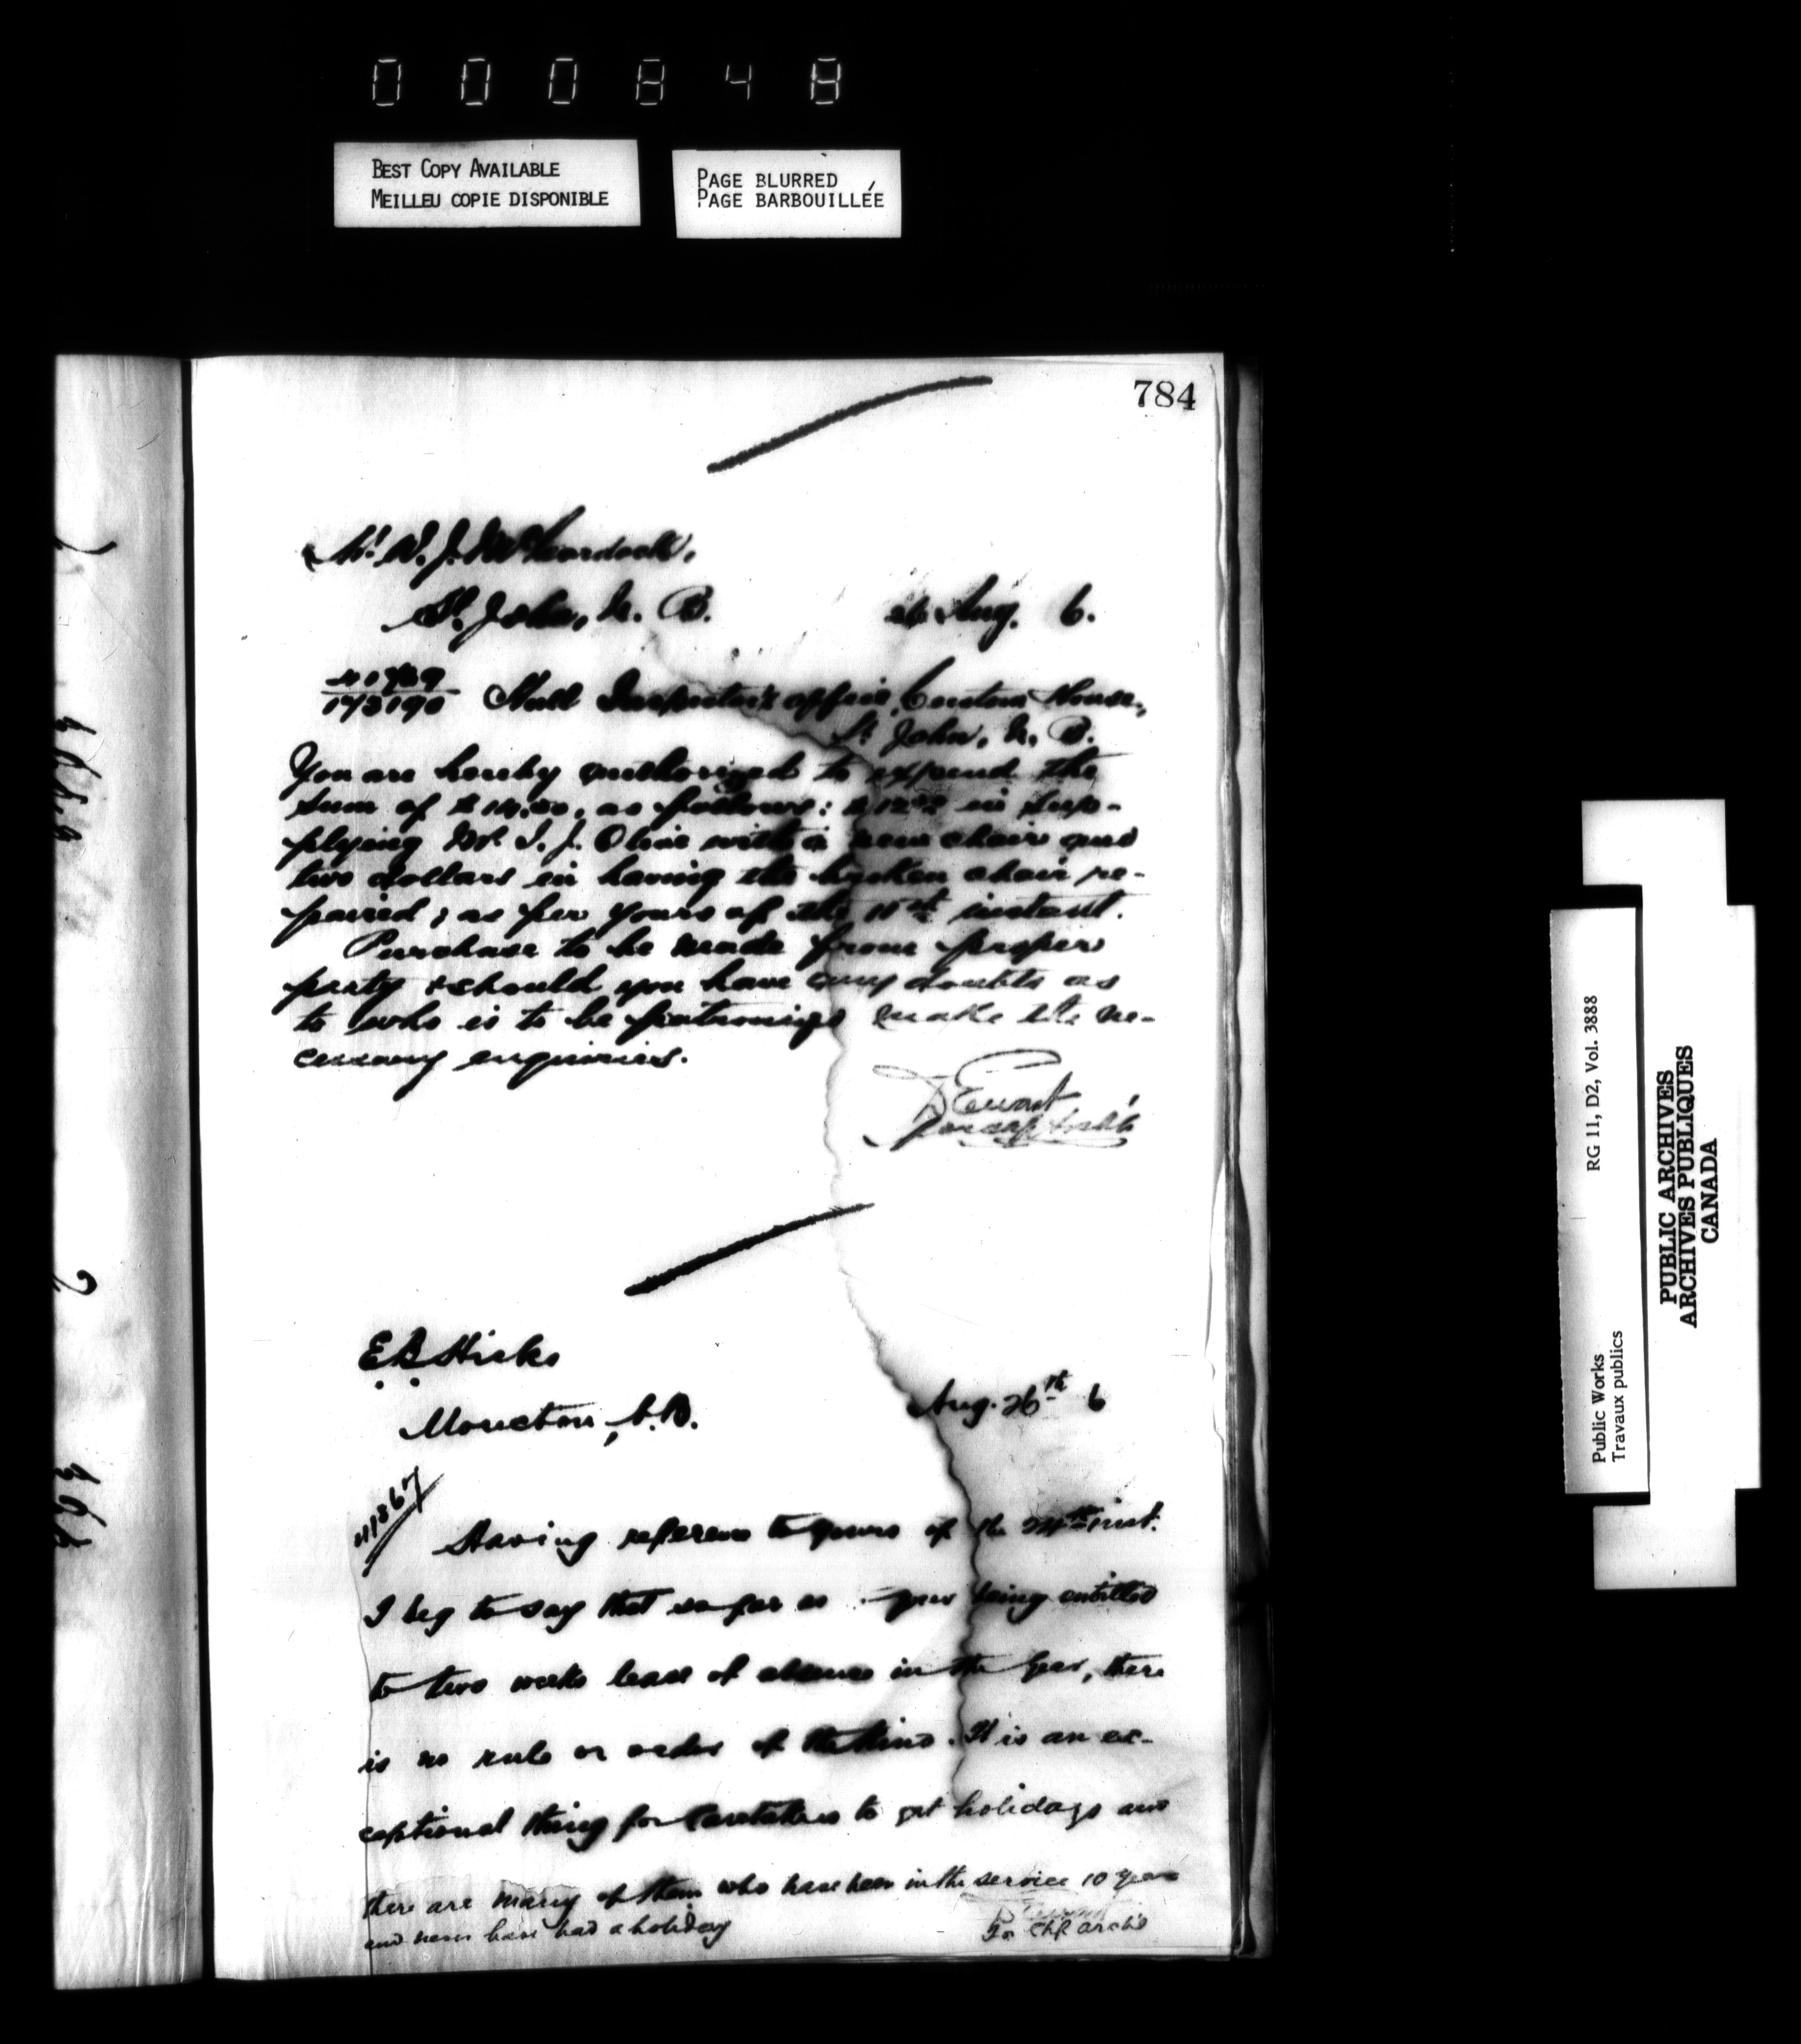 000848
BEST COPY AVAILABLE
MEILLEU COPIE DISPONIBLE
PAGE BLURRED
PAGE BARBOUILLÉE
784
W. J.
St. John, N. B. 26 Aug. 6.
173190 Hull Inspector's office, Custom House,
St. John, N. B.
You are hereby authorized to expend the
sum of $14.00, as follows: $12.00 in sup-
plying Mr. I. J. Olive with a new chair and
two dollars in having the broken chair re-
paired; as per yours of the 15th instant.
Purchase to be made from proper
party & should you have any doubts as
to who is to be patronized make the ne-
cessary enquiries.
D Ewart
E.B. Hicks
Moncton, N.B. Aug. 26th 6
41867
Having reference to yours of the 24th inst.
I beg to say that so far as your being entitled
to two weeks leave of absence in the year, there
is no rule or order of the kind. It is an ex-
ceptional thing for Caretakers to get holidays and
there are many of them who have been in the service 10 years
and never have had a holiday
D Ewart
For Chf Archt
Public Works
Travaux publics
RG 11, D2, Vol. 3888
PUBLIC ARCHIVES
ARCHIVES PUBLIQUES
CANADA